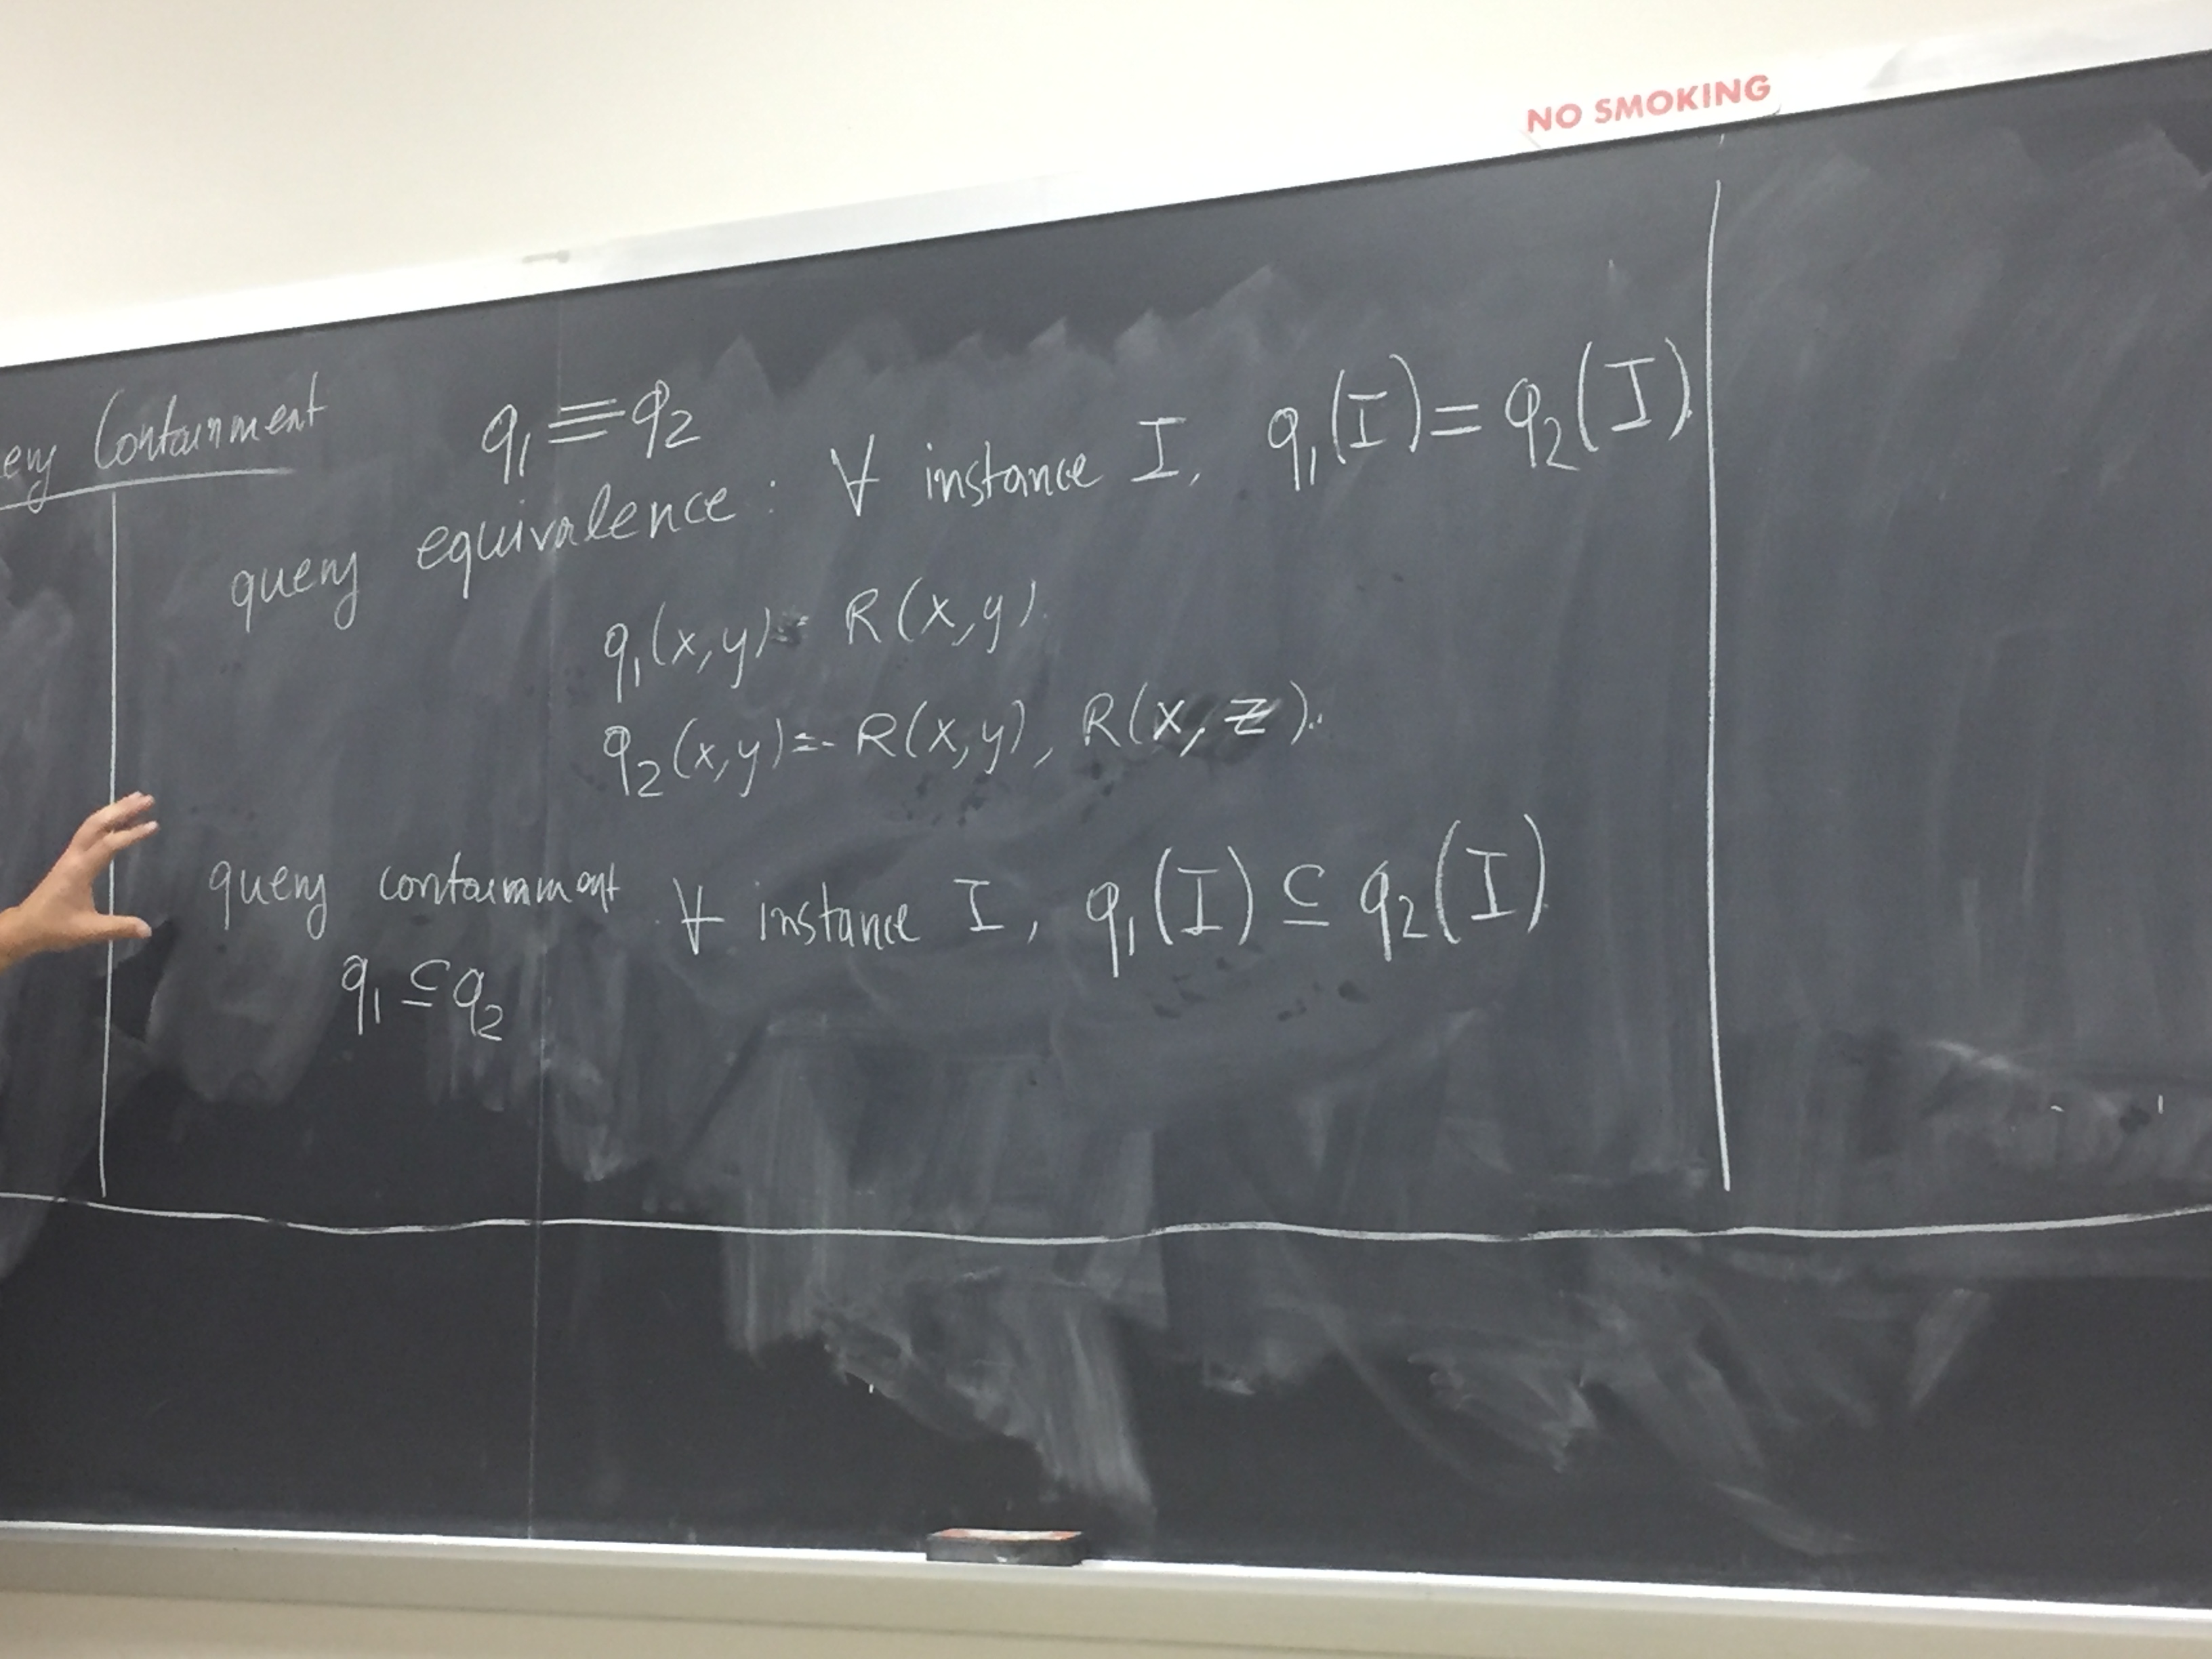 NO SMOKING
Containment
q₁ ≡ q₂
query equivalence : ∀ instance I, q₁(I) = q₂(I).
q₁(x,y) :- R(x,y).
q₂(x,y) :- R(x,y), R(x,z).
query containment ∀ instance I, q₁(I) ⊆ q₂(I)
q₁ ⊆ q₂